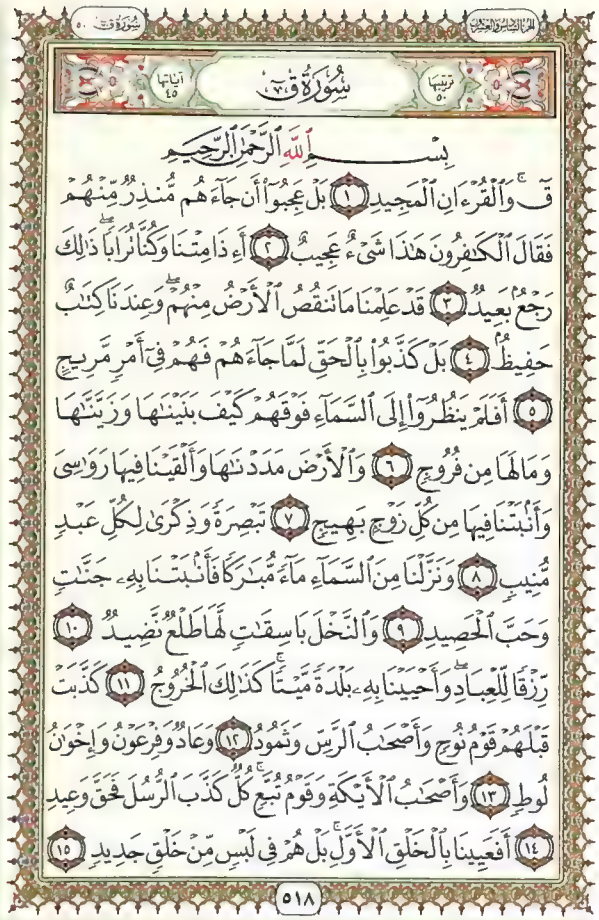 سُورَةُ قٓ ٥٠
الجزء السادس والعشرون
آياتها ٤٥ سُورَةُ قٓ ترتيبها ٥٠
بِسْمِ ٱللَّهِ ٱلرَّحْمَٰنِ ٱلرَّحِيمِ
قٓ ۚ وَٱلْقُرْءَانِ ٱلْمَجِيدِ ١ بَلْ عَجِبُوٓا۟ أَن جَآءَهُم مُّنذِرٌ مِّنْهُمْ
فَقَالَ ٱلْكَٰفِرُونَ هَٰذَا شَىْءٌ عَجِيبٌ ٢ أَءِذَا مِتْنَا وَكُنَّا تُرَابًا ۖ ذَٰلِكَ
رَجْعٌۢ بَعِيدٌ ٣ قَدْ عَلِمْنَا مَا تَنقُصُ ٱلْأَرْضُ مِنْهُمْ ۖ وَعِندَنَا كِتَٰبٌ
حَفِيظٌۢ ٤ بَلْ كَذَّبُوا۟ بِٱلْحَقِّ لَمَّا جَآءَهُمْ فَهُمْ فِىٓ أَمْرٍ مَّرِيجٍ
٥ أَفَلَمْ يَنظُرُوٓا۟ إِلَى ٱلسَّمَآءِ فَوْقَهُمْ كَيْفَ بَنَيْنَٰهَا وَزَيَّنَّٰهَا
وَمَا لَهَا مِن فُرُوجٍ ٦ وَٱلْأَرْضَ مَدَدْنَٰهَا وَأَلْقَيْنَا فِيهَا رَوَٰسِىَ
وَأَنۢبَتْنَا فِيهَا مِن كُلِّ زَوْجٍۭ بَهِيجٍ ٧ تَبْصِرَةً وَذِكْرَىٰ لِكُلِّ عَبْدٍ
مُّنِيبٍ ٨ وَنَزَّلْنَا مِنَ ٱلسَّمَآءِ مَآءً مُّبَٰرَكًا فَأَنۢبَتْنَا بِهِۦ جَنَّٰتٍ
وَحَبَّ ٱلْحَصِيدِ ٩ وَٱلنَّخْلَ بَاسِقَٰتٍ لَّهَا طَلْعٌ نَّضِيدٌ ١٠
رِّزْقًا لِّلْعِبَادِ ۖ وَأَحْيَيْنَا بِهِۦ بَلْدَةً مَّيْتًا ۚ كَذَٰلِكَ ٱلْخُرُوجُ ١١ كَذَّبَتْ
قَبْلَهُمْ قَوْمُ نُوحٍ وَأَصْحَٰبُ ٱلرَّسِّ وَثَمُودُ ١٢ وَعَادٌ وَفِرْعَوْنُ وَإِخْوَٰنُ
لُوطٍ ١٣ وَأَصْحَٰبُ ٱلْأَيْكَةِ وَقَوْمُ تُبَّعٍ ۚ كُلٌّ كَذَّبَ ٱلرُّسُلَ فَحَقَّ وَعِيدِ
١٤ أَفَعَيِينَا بِٱلْخَلْقِ ٱلْأَوَّلِ ۚ بَلْ هُمْ فِى لَبْسٍ مِّنْ خَلْقٍ جَدِيدٍ ١٥
٥١٨